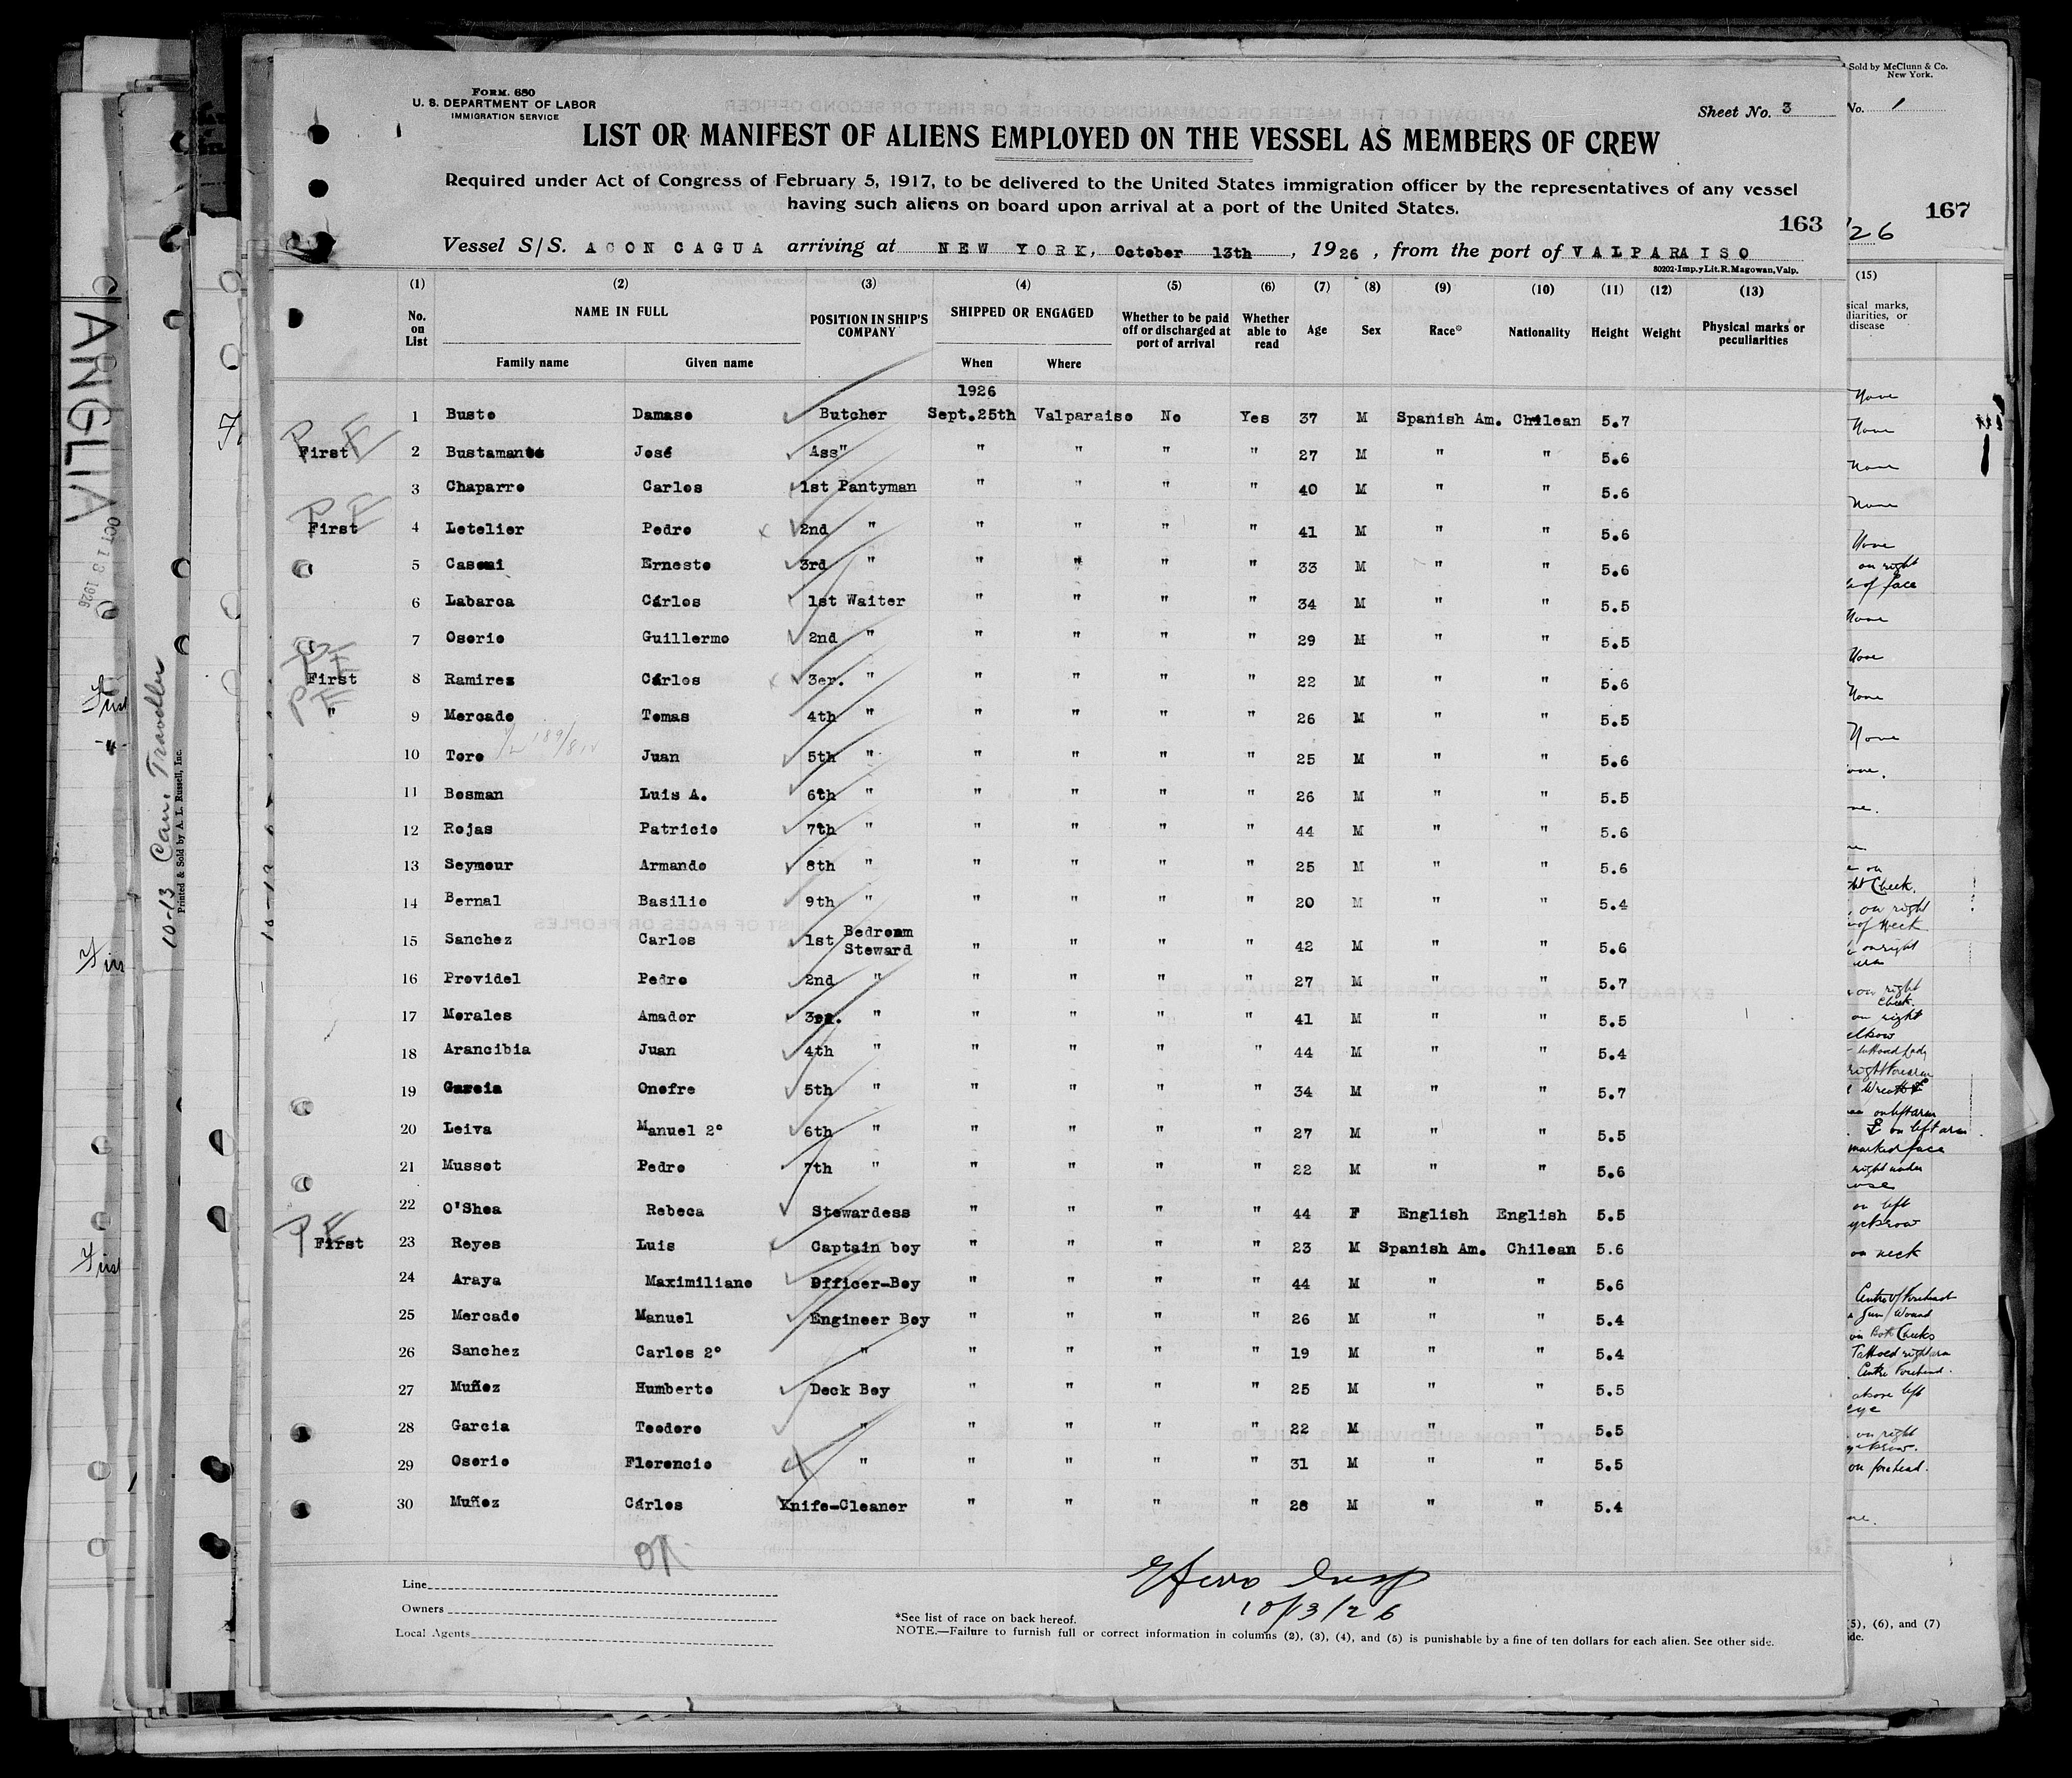 Form. 680
U. S. DEPARTMENT OF LABOR
IMMIGRATION SERVICE
Sheet No. 3
LIST OR MANIFEST OF ALIENS EMPLOYED ON THE VESSEL AS MEMBERS OF CREW
Required under Act of Congress of February 5, 1917, to be delivered to the United States immigration officer by the representatives of any vessel
having such aliens on board upon arrival at a port of the United States.
163
Vessel S/S. ACONCAGUA arriving at NEW YORK, October 13th, 1926, from the port of VALPARAISO
80202-Imp.yLit.R.Magowan,Valp.
(1) (2) (3) (4) (5) (6) (7) (8) (9) (10) (11) (12) (13)
No. on List NAME IN FULL Family name Given name POSITION IN SHIP'S COMPANY SHIPPED OR ENGAGED When Where Whether to be paid off or discharged at port of arrival Whether able to read Age Sex Race* Nationality Height Weight Physical marks or peculiarities
1926
1 Busto Damaso Butcher Sept.25th Valparaiso No Yes 37 M Spanish Am. Chilean 5.7
PF First 2 Bustamante José Ass" " " " " 27 M " " 5.6
3 Chaparro Carlos 1st Pantyman " " " " 40 M " " 5.6
PF First 4 Letelier Pedro x 2nd " " " " " 41 M " " 5.6
5 Casoni Ernesto 3rd " " " " " 33 M " " 5.6
6 Labarca Cárlos 1st Waiter " " " " 34 M " " 5.5
7 Osorio Guillermo 2nd " " " " " 29 M " " 5.5
PF First 8 Ramirez Cárlos x 3er. " " " " " 22 M " " 5.6
PF " 9 Mercado Tomas 4th " " " " " 26 M " " 5.5
10 Toro Juan 5th " " " " " 25 M " " 5.6
11 Bosman Luis A. 6th " " " " " 26 M " " 5.5
12 Rojas Patricio 7th " " " " " 44 M " " 5.6
13 Seymour Armando 8th " " " " " 25 M " " 5.6
14 Bernal Basilio 9th " " " " " 20 M " " 5.4
15 Sanchez Carlos 1st Bedroom Steward " " " " 42 M " " 5.6
16 Providel Pedro 2nd " " " " " 27 M " " 5.7
17 Morales Amador 3er. " " " " " 41 M " " 5.5
18 Arancibia Juan 4th " " " " " 44 M " " 5.4
19 Garcia Onofre 5th " " " " " 34 M " " 5.7
20 Leiva Manuel 2º 6th " " " " " 27 M " " 5.5
21 Musset Pedro 7th " " " " " 22 M " " 5.6
22 O'Shea Rebeca Stewardess " " " " 44 F English English 5.5
PF First 23 Reyes Luis Captain boy " " " " 23 M Spanish Am. Chilean 5.6
24 Araya Maximiliano Officer-Boy " " " " 44 M " " 5.6
25 Mercado Manuel Engineer Boy " " " " 26 M " " 5.4
26 Sanchez Carlos 2º " " " " " 19 M " " 5.4
27 Muñoz Humberto Deck Boy " " " " 25 M " " 5.5
28 Garcia Teodoro " " " " " 22 M " " 5.5
29 Osorio Florencio " " " " " 31 M " " 5.5
30 Muñoz Cárlos Knife-Cleaner " " " " 28 M " " 5.4
OK
10/13/26
Line
Owners
Local Agents
*See list of race on back hereof.
NOTE.—Failure to furnish full or correct information in columns (2), (3), (4), and (5) is punishable by a fine of ten dollars for each alien. See other side.
ANGLIA
OCT 13 1926
10-13 Cain, Travdler
Printed & Sold by A. L. Russell, Inc.
First
"
First
Sold by McClunn & Co.
New York.
No. 1
167
'26
(15)
sical marks,
liarities, or
disease
None
None
None
None
None
on right
of face
None
None
None
None
on right
Cheek.
on right
elbow
on left arm
marked face
on left
on neck
Centre of Forehead
Gun Wound
on Both Cheeks
Centre Forehead.
above left
eye
on right
on forehead.
(5), (6), and (7)
ide.